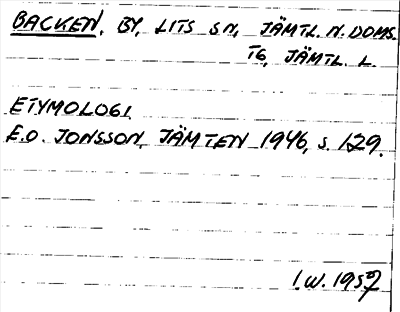 BACKEN, BY, LITS SN, JÄMTL. N. DOMS.
TG, JÄMTL. L.
ETYMOLOGI.
E.O. JONSSON, JÄMTEN 1946, S. 129.
I.W. 1957